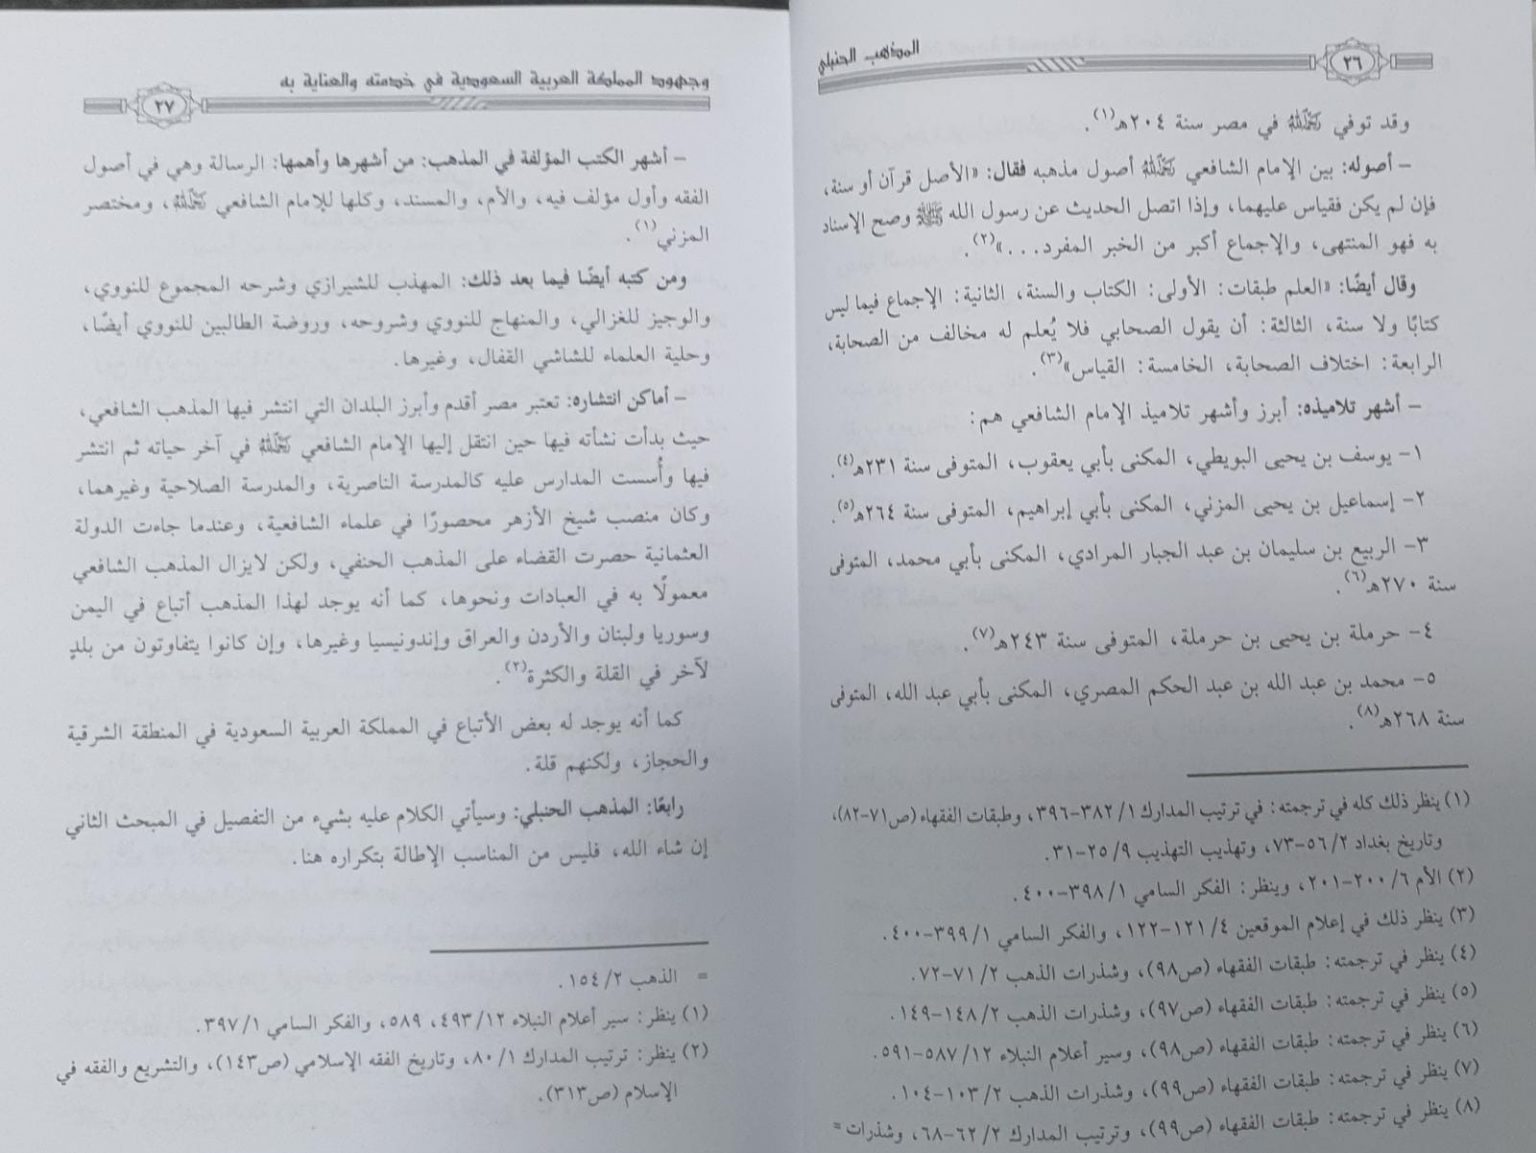 ٢٦
المذهب الحنبلي
وقد توفي رَحِمَهُ اللَّهُ في مصر سنة ٢٠٤هـ(١).
– أصوله: بين الإمام الشافعي رَحِمَهُ اللَّهُ أصول مذهبه فقال: «الأصل قرآن أو سنة،
فإن لم يكن فقياس عليهما، وإذا اتصل الحديث عن رسول الله ﷺ وصح الإسناد
به فهو المنتهى، والإجماع أكبر من الخبر المفرد...»(٢).
وقال أيضًا: «العلم طبقات: الأولى: الكتاب والسنة، الثانية: الإجماع فيما ليس
كتابًا ولا سنة، الثالثة: أن يقول الصحابي فلا يُعلم له مخالف من الصحابة،
الرابعة: اختلاف الصحابة، الخامسة: القياس»(٣).
– أشهر تلاميذه: أبرز وأشهر تلاميذ الإمام الشافعي هم:
١– يوسف بن يحيى البويطي، المكنى بأبي يعقوب، المتوفى سنة ٢٣١هـ(٤).
٢– إسماعيل بن يحيى المزني، المكنى بأبي إبراهيم، المتوفى سنة ٢٦٤هـ(٥).
٣– الربيع بن سليمان بن عبد الجبار المرادي، المكنى بأبي محمد، المتوفى
سنة ٢٧٠هـ(٦).
٤– حرملة بن يحيى بن حرملة، المتوفى سنة ٢٤٣هـ(٧).
٥– محمد بن عبد الله بن عبد الحكم المصري، المكنى بأبي عبد الله، المتوفى
سنة ٢٦٨هـ(٨).
(١) ينظر ذلك كله في ترجمته: في ترتيب المدارك ٣٨٢/١–٣٩٦، وطبقات الفقهاء (ص٧١–٨٢)،
وتاريخ بغداد ٥٦/٢–٧٣، وتهذيب التهذيب ٢٥/٩–٣١.
(٢) الأم ٢٠٠/٦–٢٠١، وينظر: الفكر السامي ٣٩٨/١–٤٠٠.
(٣) ينظر ذلك في إعلام الموقعين ١٢١/٤–١٢٢، والفكر السامي ٣٩٩/١–٤٠٠.
(٤) ينظر في ترجمته: طبقات الفقهاء (ص٩٨)، وشذرات الذهب ٧١/٢–٧٢.
(٥) ينظر في ترجمته: طبقات الفقهاء (ص٩٧)، وشذرات الذهب ١٤٨/٢–١٤٩.
(٦) ينظر في ترجمته: طبقات الفقهاء (ص٩٨)، وسير أعلام النبلاء ٥٨٧/١٢–٥٩١.
(٧) ينظر في ترجمته: طبقات الفقهاء (ص٩٩)، وشذرات الذهب ١٠٣/٢–١٠٤.
(٨) ينظر في ترجمته: طبقات الفقهاء (ص٩٩)، وترتيب المدارك ٦٢/٢–٦٨، وشذرات =
وجهود المملكة العربية السعودية في خدمته والعناية به
٢٧
– أشهر الكتب المؤلفة في المذهب: من أشهرها وأهمها: الرسالة وهي في أصول
الفقه وأول مؤلف فيه، والأم، والمسند، وكلها للإمام الشافعي رَحِمَهُ اللَّهُ، ومختصر
المزني(١).
ومن كتبه أيضًا فيما بعد ذلك: المهذب للشيرازي وشرحه المجموع للنووي،
والوجيز للغزالي، والمنهاج للنووي وشروحه، وروضة الطالبين للنووي أيضًا،
وحلية العلماء للشاشي القفال، وغيرها.
– أماكن انتشاره: تعتبر مصر أقدم وأبرز البلدان التي انتشر فيها المذهب الشافعي،
حيث بدأت نشأته فيها حين انتقل إليها الإمام الشافعي رَحِمَهُ اللَّهُ في آخر حياته ثم انتشر
فيها وأُسست المدارس عليه كالمدرسة الناصرية، والمدرسة الصلاحية وغيرهما،
وكان منصب شيخ الأزهر محصورًا في علماء الشافعية، وعندما جاءت الدولة
العثمانية حصرت القضاء على المذهب الحنفي، ولكن لايزال المذهب الشافعي
معمولًا به في العبادات ونحوها، كما أنه يوجد لهذا المذهب أتباع في اليمن
وسوريا ولبنان والأردن والعراق وإندونيسيا وغيرها، وإن كانوا يتفاوتون من بلدٍ
لآخر في القلة والكثرة(٢).
كما أنه يوجد له بعض الأتباع في المملكة العربية السعودية في المنطقة الشرقية
والحجاز، ولكنهم قلة.
رابعًا: المذهب الحنبلي: وسيأتي الكلام عليه بشيء من التفصيل في المبحث الثاني
إن شاء الله، فليس من المناسب الإطالة بتكراره هنا.
= الذهب ١٥٤/٢.
(١) ينظر: سير أعلام النبلاء ٤٩٣/١٢، ٥٨٩، والفكر السامي ٣٩٧/١.
(٢) ينظر: ترتيب المدارك ٨٠/١، وتاريخ الفقه الإسلامي (ص١٤٣)، والتشريع والفقه في
الإسلام (ص٣١٣).